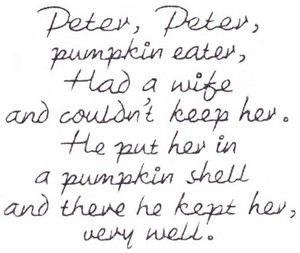 Peter, Peter,
pumpkin eater,
Had a wife
and couldn't keep her.
He put her in
a pumpkin shell
and there he kept her,
very well.